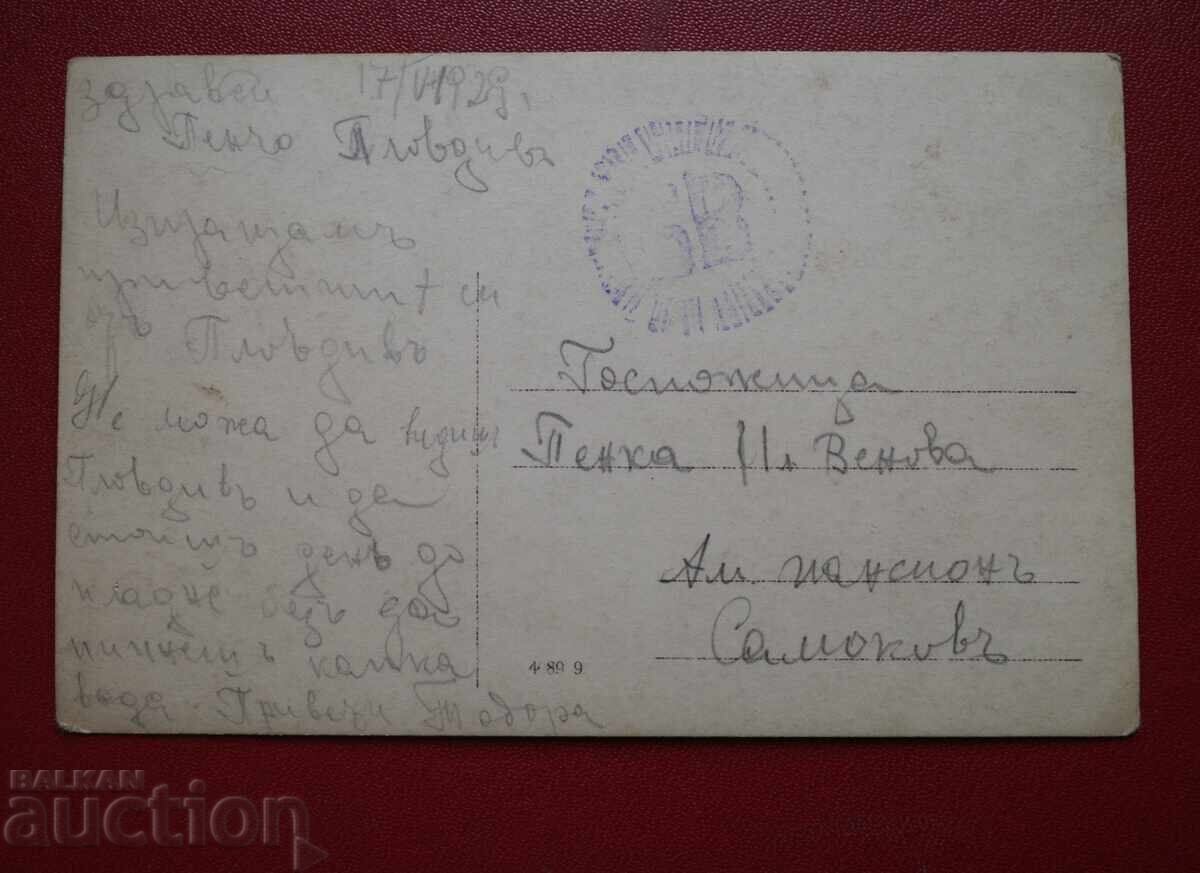 здравей 17/VI 1929,
Пенчо Пловдивъ
Изпращамъ
приветитѣ си
изъ Пловдивъ
Не можа да видишъ
Пловдивъ и да
стоишъ день до
пладне безъ да
пинешъ капка
вода Привети Тодора
Госпожица
Пенка Ил Венова
Ам. пансионъ
Самоковъ
4 89 9
BALKAN
auction